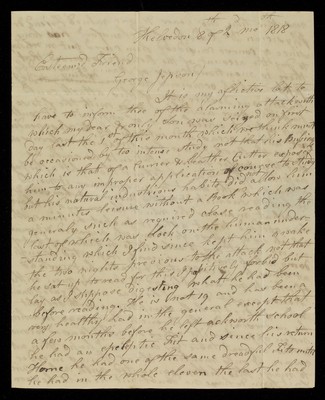 8th 2 moth 1818
Esteemed Friend
George Jepson
It is my afflictive lot to
have to inform thee of the alarming attack with
which my dear & only Son was seized on first
day last the 1st of this month which we think must
be occasioned by too intense study not that his Business
which is that of a Tanner & Leather Cutter exposes
him to any improper application of
but his natural industrious habits did allow him
a minutes leisure without a Book which was
generaly such as required close reading the
last of which was Lock on the human under
standing which I find since kept him awake
the two nights previous to the attack not that
he sat up to read for this but
lay as I suppose digesting what he had been
before reading He is 19 and has been a
very healthy lad in the general except that
a few months before he left ackworth school
he had an epeleptic Fit and since his return
Home he had one of the same dreadful
he had in the whole eleven the last he had